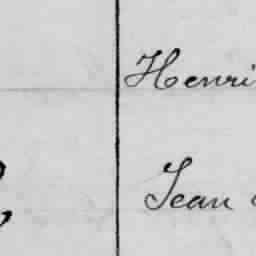 Henri
Jean